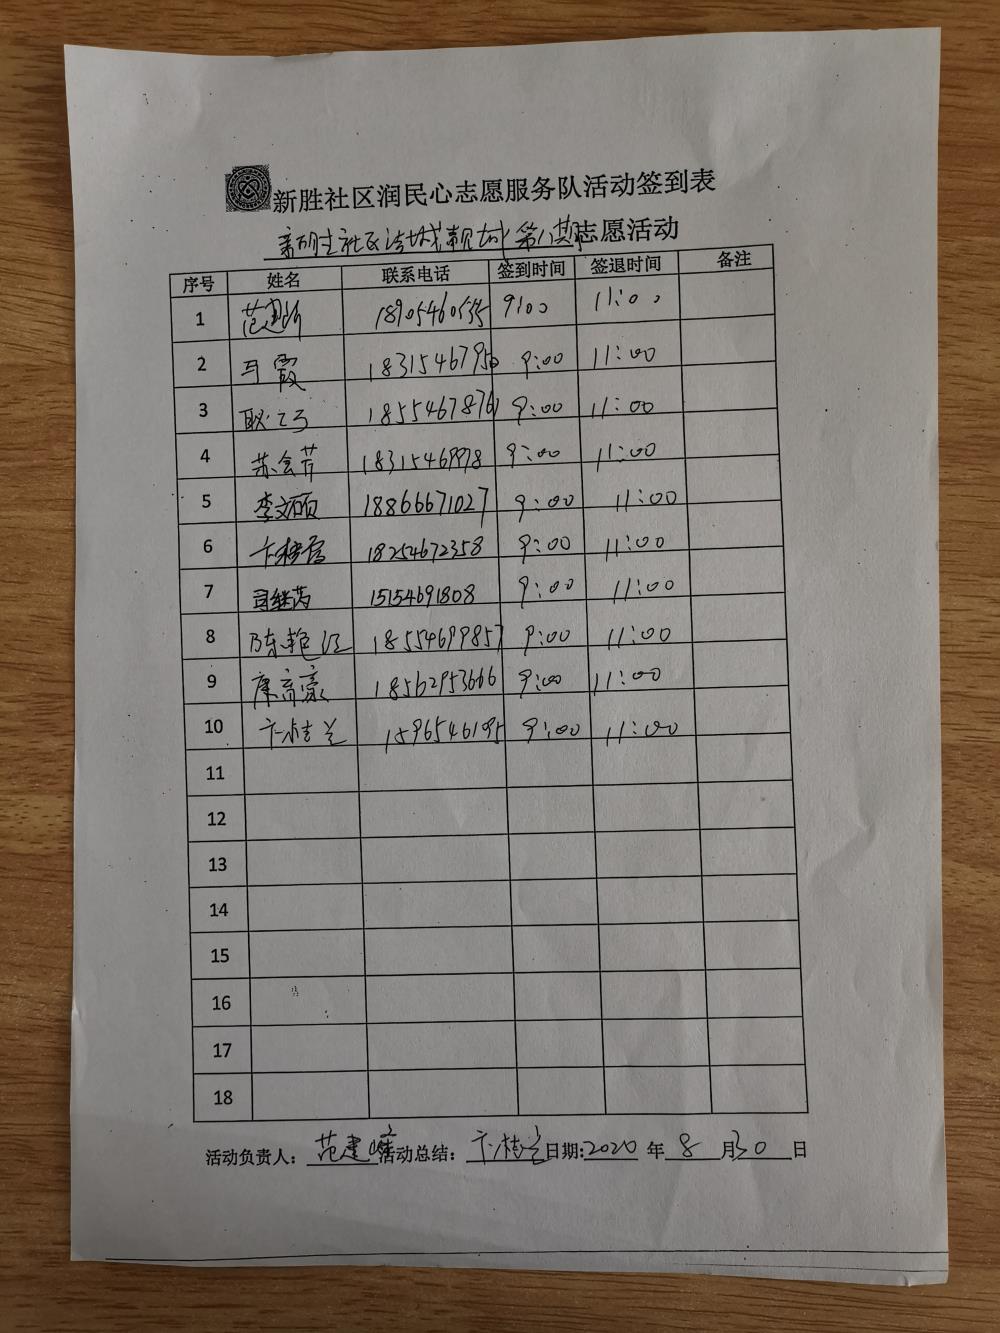 新胜社区润民心志愿服务队活动签到表
新胜社区洁城靓城第八期志愿活动
序号 姓名 联系电话 签到时间 签退时间 备注
1 9:00 11:00
2 马霞 1831546795 9:00 11:00
3 9:00 11:00
4 苏会芹 9:00 11:00
5 李文硕 18866671027 9:00 11:00
6 卞桂营 18254672358 9:00 11:00
7 司继芮 15154691808 9:00 11:00
8 陈艳江 18554699857 9:00 11:00
9 康高豪 18562953666 9:00 11:00
10 卞桂兰 9:00 11:00
11
12
13
14
15
16
17
18
活动负责人: 范建 活动总结: 卞桂兰 日期:2020 年 8 月30 日